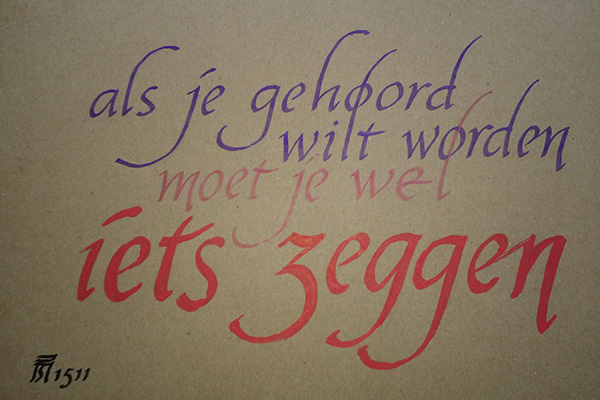 als je gehoord
wilt worden
moet je wel
iets zeggen
1511